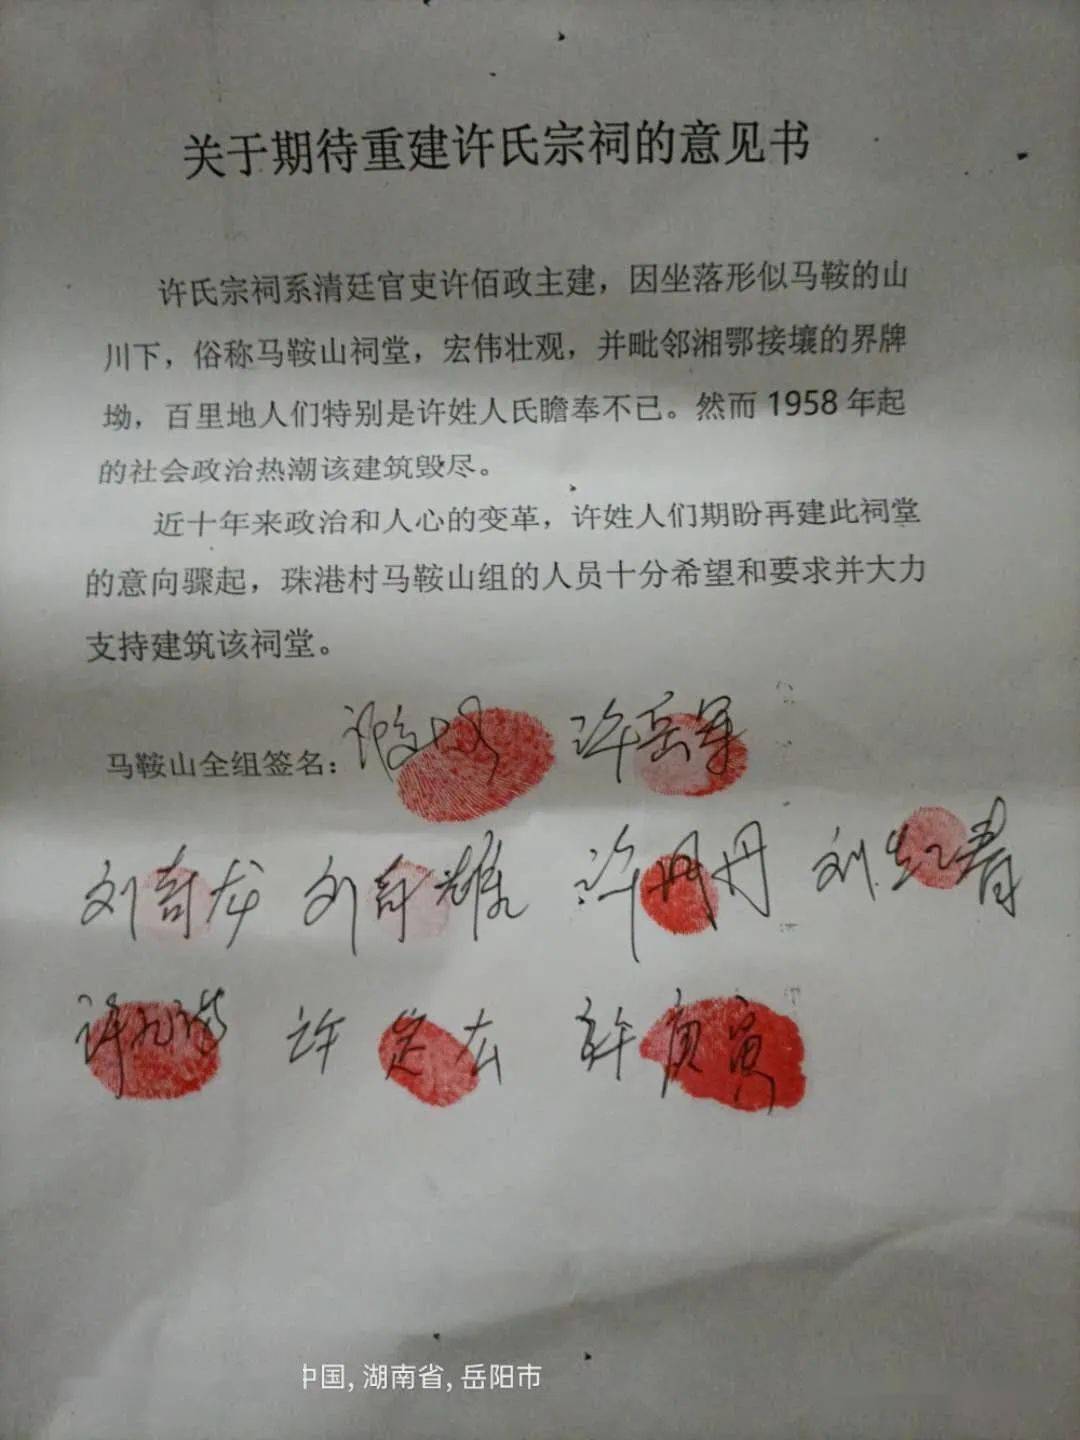 关于期待重建许氏宗祠的意见书
许氏宗祠系清廷官吏许佰政主建，因坐落形似马鞍的山
川下，俗称马鞍山祠堂，宏伟壮观，并毗邻湘鄂接壤的界牌
坳，百里地人们特别是许姓人氏瞻奉不已。然而 1958 年起
的社会政治热潮该建筑毁尽。
近十年来政治和人心的变革，许姓人们期盼再建此祠堂
的意向骤起，珠港村马鞍山组的人员十分希望和要求并大力
支持建筑该祠堂。
马鞍山全组签名： 许岳军
刘奇龙 刘奇耀 许丹丹 刘红春
许 许定宏 许庚寅
中国, 湖南省, 岳阳市